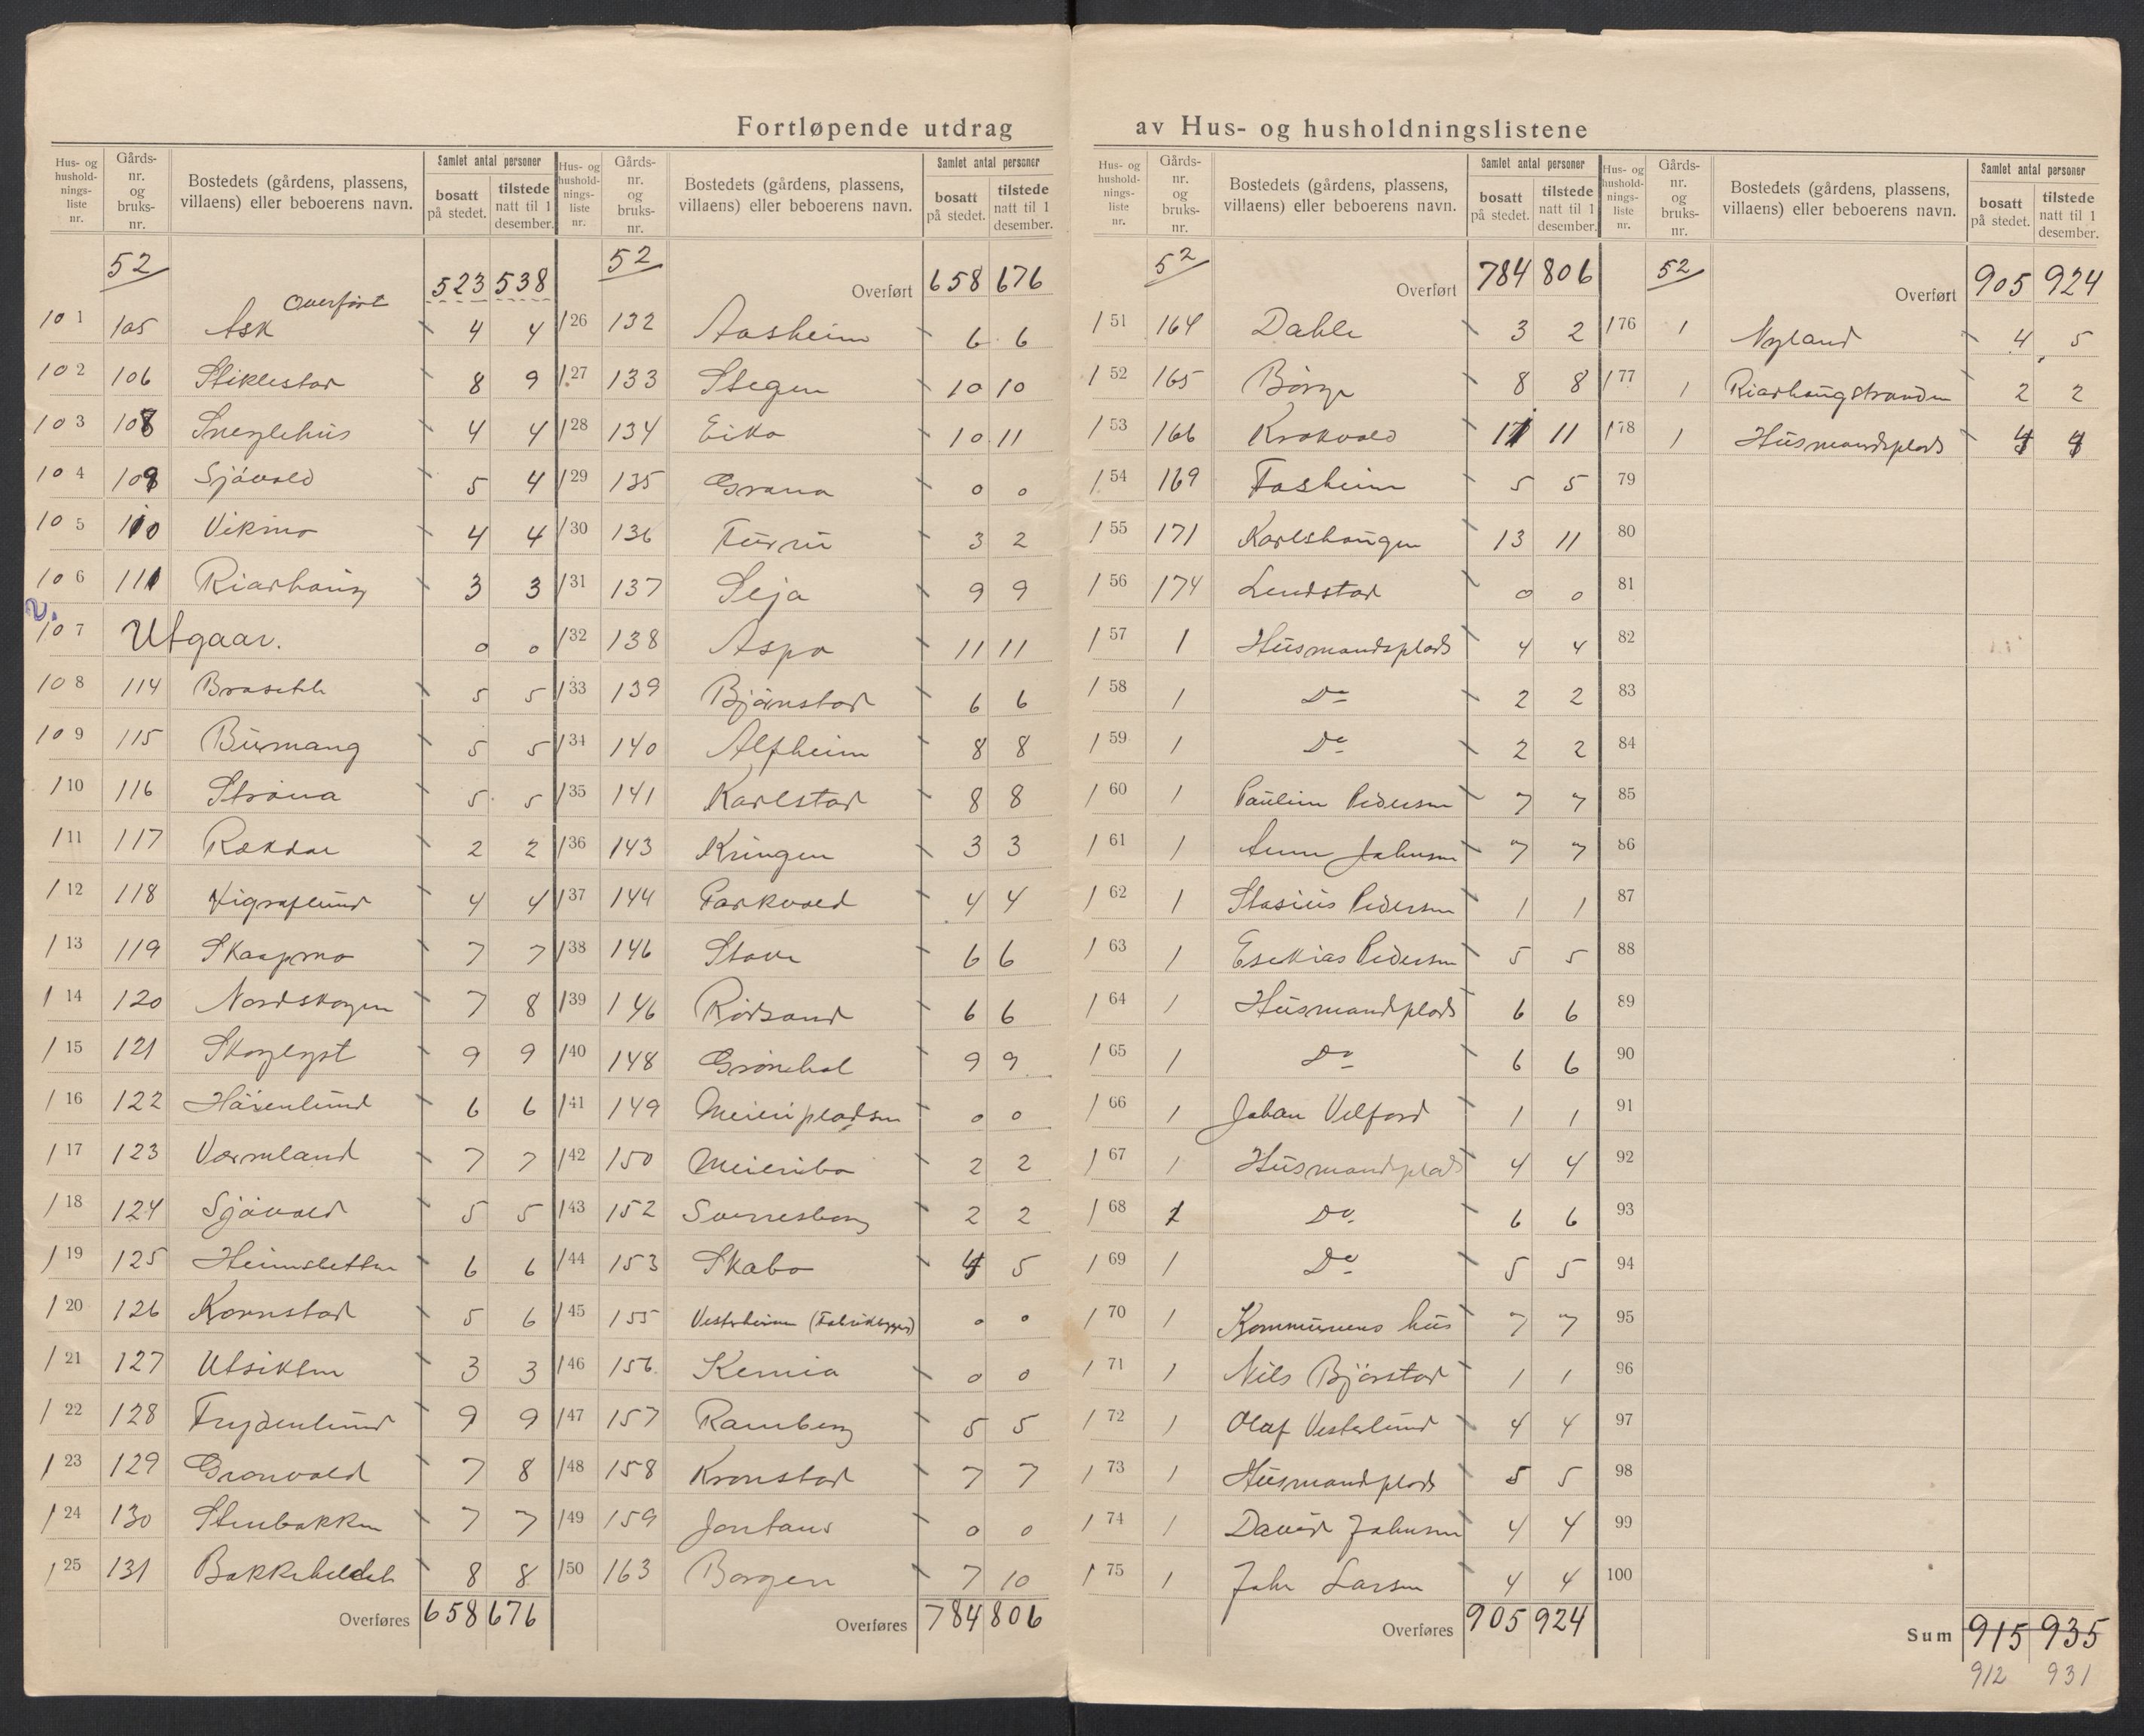 Fortløpende utdrag av Hus- og husholdningslistene
Hus- og husholdnings-liste nr. | Gårds-nr. og bruks-nr. | Bostedets (gårdens, plassens, villaens) eller beboerens navn. | Samlet antal personer | bosatt på stedet. | tilstede natt til 1 desember.
52 | Overført | 523 | 538
101 | 105 | Ask | 4 | 4
102 | 106 | Stiklestad | 8 | 9
103 | 108 | Sneglehus | 4 | 4
104 | 109 | Sjövold | 5 | 4
105 | 110 | Vikmo | 4 | 4
106 | 111 | Riarhaug | 3 | 3
v.
107 | Utgaar. | 0 | 0
108 | 114 | 5 | 5
109 | 115 | Burmang | 5 | 5
110 | 116 | Strana | 5 | 5
111 | 117 | Rækdal | 2 | 2
112 | 118 | 4 | 4
113 | 119 | Skaapmo | 7 | 7
114 | 120 | Nordskogen | 7 | 8
115 | 121 | Skoglyst | 9 | 9
116 | 122 | Haugenlund | 6 | 6
117 | 123 | Værmland | 7 | 7
118 | 124 | Sjövold | 5 | 5
119 | 125 | Heimsletten | 6 | 6
120 | 126 | Kornstad | 5 | 6
121 | 127 | Utsikten | 3 | 3
122 | 128 | Frydenlund | 9 | 9
123 | 129 | Grönvold | 7 | 8
124 | 130 | Stenbakken | 7 | 7
125 | 131 | 8 | 8
Overføres | 658 | 676
Hus- og husholdnings-liste nr. | Gårds-nr. og bruks-nr. | Bostedets (gårdens, plassens, villaens) eller beboerens navn. | Samlet antal personer | bosatt på stedet. | tilstede natt til 1 desember.
52 | Overført | 658 | 676
126 | 132 | Aasheim | 6 | 6
127 | 133 | Stegen | 10 | 10
128 | 134 | Eika | 10 | 11
129 | 135 | Grana | 0 | 0
130 | 136 | Furru | 3 | 2
131 | 137 | Selja | 9 | 9
132 | 138 | Aspa | 11 | 11
133 | 139 | Björnstad | 6 | 6
134 | 140 | Alfheim | 8 | 8
135 | 141 | Karlstad | 8 | 8
136 | 143 | Kringen | 3 | 3
137 | 144 | Parkvold | 4 | 4
138 | 146 | Stave | 6 | 6
139 | 146 | Rödsand | 6 | 6
140 | 148 | 9 | 9
141 | 149 | Meieripladsen | 0 | 0
142 | 150 | Meieribo | 2 | 2
143 | 152 | Sverresborg | 2 | 2
144 | 153 | Skabo | 4 | 5
145 | 155 | Vesterheim | 0 | 0
146 | 156 | Kemia | 0 | 0
147 | 157 | Ramberg | 5 | 5
148 | 158 | Kronstad | 7 | 7
149 | 159 | 0 | 0
150 | 163 | Borgen | 7 | 10
Overføres | 784 | 806
Hus- og husholdnings-liste nr. | Gårds-nr. og bruks-nr. | Bostedets (gårdens, plassens, villaens) eller beboerens navn. | Samlet antal personer | bosatt på stedet. | tilstede natt til 1 desember.
52 | Overført | 784 | 806
151 | 164 | Dahle | 3 | 2
152 | 165 | Börge | 8 | 8
153 | 166 | Krokvold | 11 | 11
154 | 169 | Fasheim | 5 | 5
155 | 171 | Karlshaugen | 13 | 11
156 | 174 | Lendstad | 0 | 0
157 | 1 | Husmandsplads | 4 | 4
158 | 1 | Do | 2 | 2
159 | 1 | Do | 2 | 2
160 | 1 | Pauline Pedersen | 7 | 7
161 | 1 | Anne Johnsen | 7 | 7
162 | 1 | Stasius Pedersen | 1 | 1
163 | 1 | Esekias Pedersen | 5 | 5
164 | 1 | Husmandplads | 6 | 6
165 | 1 | Do | 6 | 6
166 | 1 | Johan Velford | 1 | 1
167 | 1 | Husmandplads | 4 | 4
168 | 1 | Do | 6 | 6
169 | 1 | Do | 5 | 5
170 | 1 | Kommunens hus | 7 | 7
171 | 1 | Nils Björstad | 1 | 1
172 | 1 | Olaf Vesterlund | 4 | 4
173 | 1 | Husmandplads | 5 | 5
174 | 1 | David Johnsen | 4 | 4
175 | 1 | Johr Larsen | 4 | 4
Overføres | 905 | 924
Hus- og husholdnings-liste nr. | Gårds-nr. og bruks-nr. | Bostedets (gårdens, plassens, villaens) eller beboerens navn. | Samlet antal personer | bosatt på stedet. | tilstede natt til 1 desember.
52 | Overført | 905 | 924
176 | 1 | Nyland | 4 | 5
177 | 1 | Riarhaugstranden | 2 | 2
178 | 1 | Husmandsplads | 4 | 4
79
80
81
82
83
84
85
86
87
88
89
90
91
92
93
94
95
96
97
98
99
100
Sum | 915 | 935
912 | 931